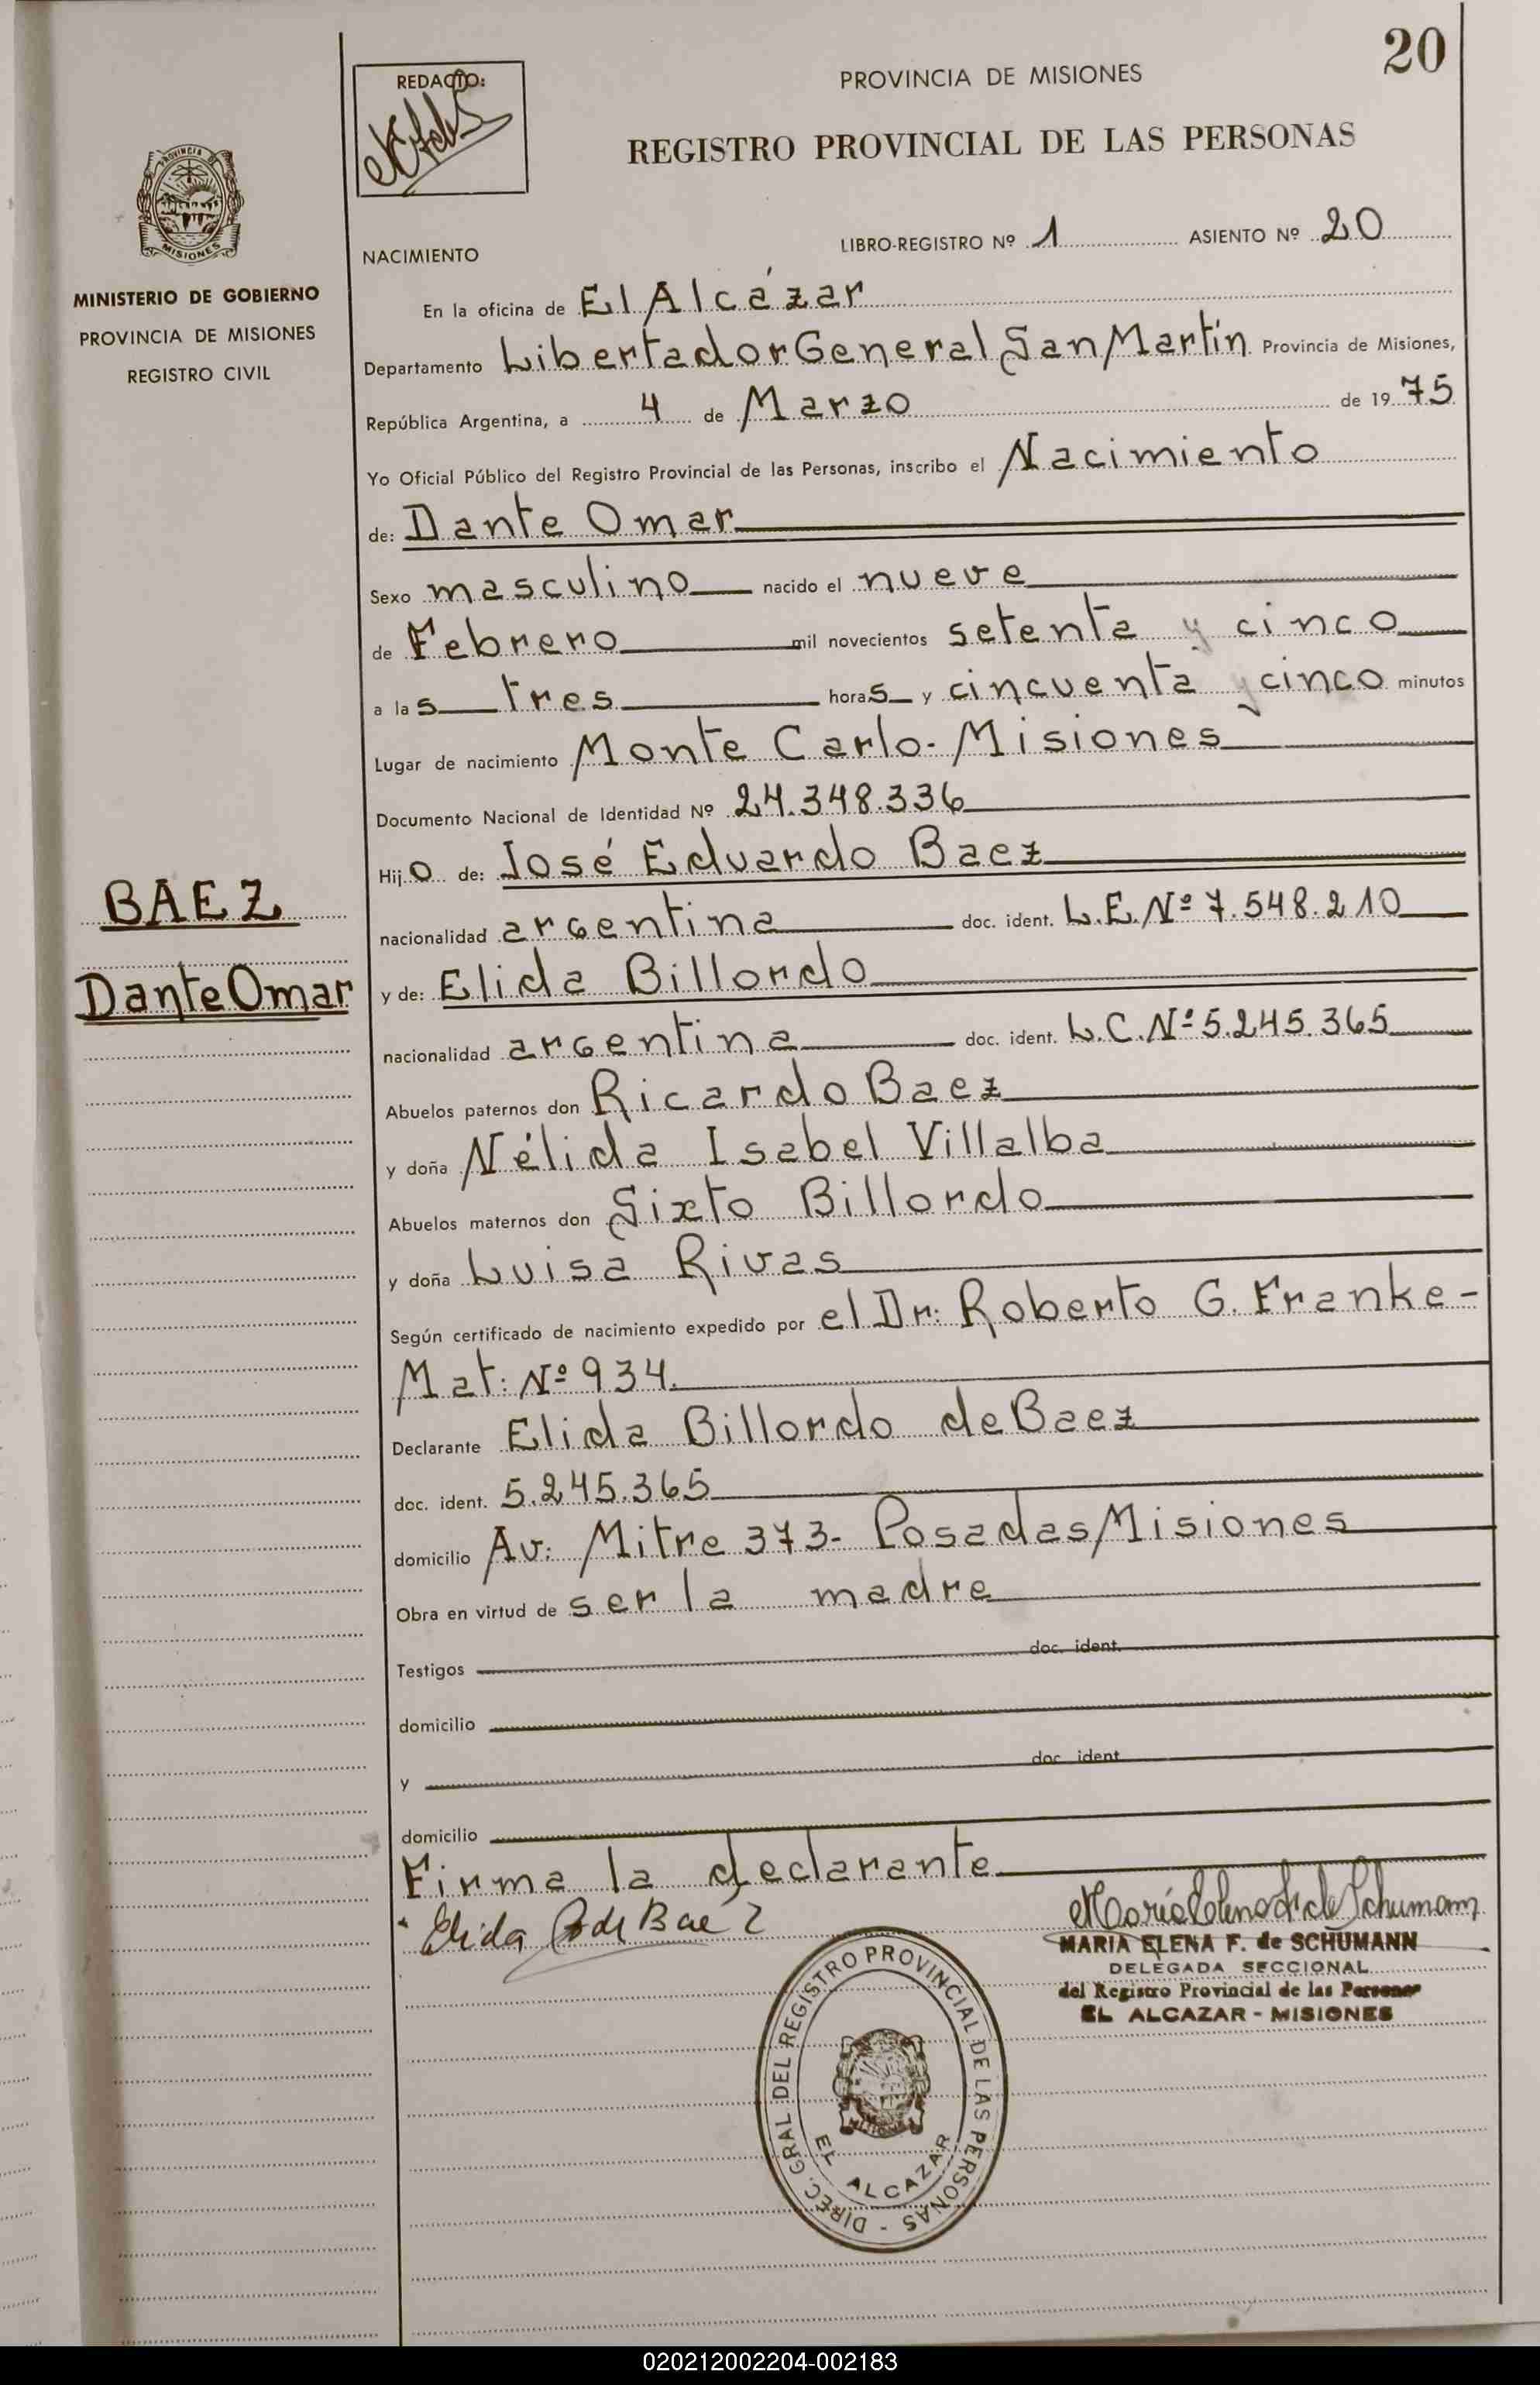 20
REDACTO:
PROVINCIA DE MISIONES
REGISTRO PROVINCIAL DE LAS PERSONAS
PROVINCIA DE
MISIONES
MINISTERIO DE GOBIERNO
PROVINCIA DE MISIONES
REGISTRO CIVIL
NACIMIENTO
LIBRO-REGISTRO Nº 1 ASIENTO Nº 20
En la oficina de El Alcázar
Departamento Libertador General San Martín Provincia de Misiones,
República Argentina, a 4 de Marzo de 1975
Yo Oficial Público del Registro Provincial de las Personas, inscribo el Nacimiento
de: Dante Omar
Sexo masculino nacido el nueve
de Febrero mil novecientos setenta y cinco
a las tres horas y cincuenta y cinco minutos
Lugar de nacimiento Monte Carlo - Misiones
Documento Nacional de Identidad Nº 24.348.336
Hijo de: José Eduardo Baez
BAEZ
nacionalidad argentina doc. ident. L.E. Nº 7.548.210
Dante Omar
y de: Elida Billordo
nacionalidad argentina doc. ident. L.C. Nº 5.245.365
Abuelos paternos don Ricardo Baez
y doña Nélida Isabel Villalba
Abuelos maternos don Sixto Billordo
y doña Luisa Rivas
Según certificado de nacimiento expedido por el Dr: Roberto G. Franke -
Mat: Nº 934.
Declarante Elida Billordo de Baez
doc. ident. 5.245.365
domicilio Av: Mitre 373 - Posadas Misiones
Obra en virtud de ser la madre
Testigos doc. ident.
domicilio
y doc. ident
domicilio
Firma la declarante
Elida de Baez
Maria Elena F. de Schumann
MARIA ELENA F. de SCHUMANN
DELEGADA SECCIONAL
del Registro Provincial de las Personas
EL ALCAZAR - MISIONES
DIREC. GRAL DEL REGISTRO PROVINCIAL DE LAS PERSONAS -
EL ALCAZAR
020212002204-002183